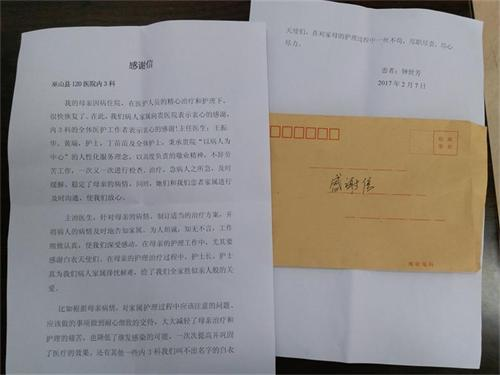 感谢信
巫山县120医院内3科
我的母亲因病住院，在医护人员的精心治疗和护理下，
很快恢复了。在此，我们病人家属向贵医院表示衷心的感谢，
内3科的全体医护工作者表示衷心的感谢！主任医生：王振
华，黄瑞，护士，丁苗苗及全体护士，秉承贵院“以病人为
中心”的人性化服务理念，以高度负责的敬业精神，不辞劳
苦工作，一次又一次进行检查、治疗，急病人之所急，及时
缓解、稳定了母亲的病情，同时，她们和我们患者家属进行
及时沟通，使我们放心。
主治医生，针对母亲的病情，制订适当的治疗方案，并
将病人的病情及时地告知家属。为人坦诚，知无不言，工作
细致认真，使我们深受感动。在母亲的护理工作中，尤其要
感谢白衣天使们。在母亲的护理治疗过程中，护士长，护士
真为我们病人家属排忧解难，给了我们全家胜似亲人般的关
爱。
比如根据母亲病情，对家属护理过程中应该注意的问题、
应该做的事项做到耐心细致的交待，大大减轻了母亲治疗和
护理的痛苦，也降低了继发感染的可能，一次次提高并巩固
了医疗的效果。还有其他一些内3科我们叫不出名字的白衣
天使们，在对家母的护理过程中一丝不苟，尽职尽责，尽心
尽力。
患者：钟世芳
2017年2月7日
感谢信